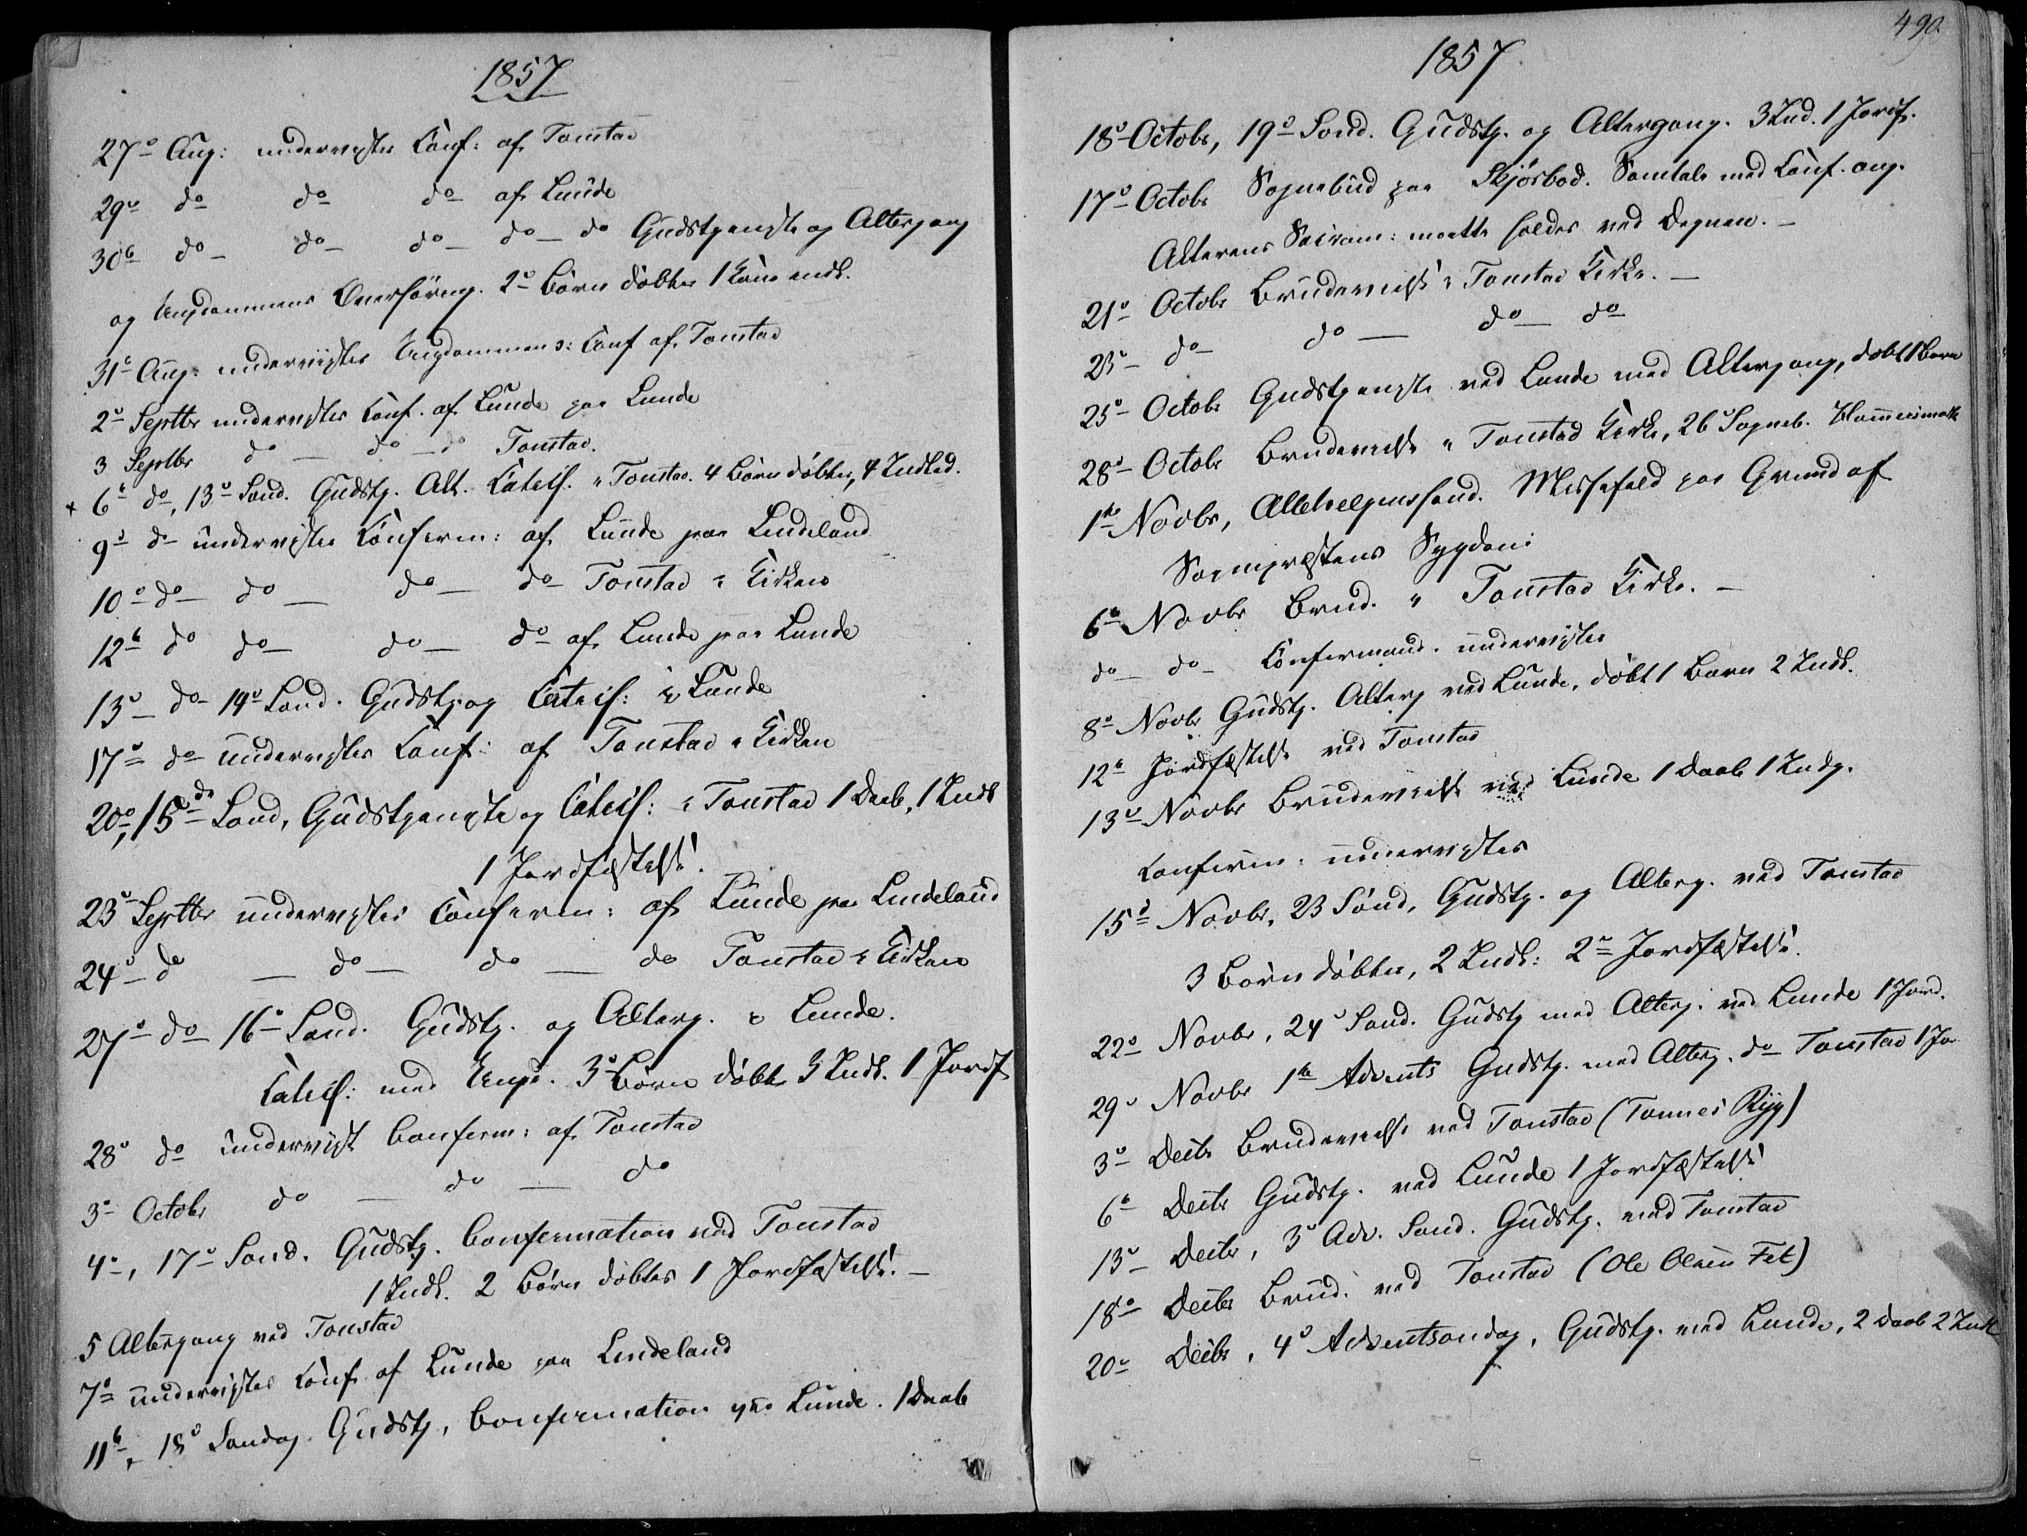 1857
27de Aug: undervistes Conf: af Tonstad
29de do do do af Lunde
30te do – do – do – do – do Gudstjeneste og Altergang
og Ungdommens Overhøring. 2de Børn døbtes 1 Kone indl.
31te Aug: undervistes Ungdommens: Conf af Tonstad
2de Septbr undervistes Conf. af Lunde paa Lunde
3 Septbr do – do – do Tonstad.
+ 6te do, 13de Sønd. Gudstj. Alt. Catech. i Tonstad. 4 Børn døbtes, 4 Indled.
9de do undervistes Conferm: af Lunde paa Lindeland
10de do – do – do – do Tonstad i Kirken
12te do do – do – do af Lunde paa Lunde
13de – do 14de Sønd. Gudstj. og Catech: i Lunde
17de do undervistes Conf: af Tonstad i Kirken
20de, 15de Sønd, Gudstjeneste og Catech: i Tonstad 1 Daab, 1 Indl
1 Jordfæstelse.
23de Septbr undervistes Conferm: af Lunde paa Lindeland
24de do – do – do – do Tonstad i Kirken
27de do 16de Sønd. Gudstj. og Alterg. i Lunde.
Catech: med Ungd. 3de Børn døbte 3 Indl. 1 Jordf
28de do undervist Conferm: af Tonstad
3de Octobr do – do – do
4de, 17de Sønd. Gudstj. Confermation ved Tonstad
1 Indl. 2 Børn døbtes 1 Jordfæstelse. –
5 Altergang ved Tonstad
7de undervistes Conf af Lunde paa Lindeland
11te, 18de Søndag Gudstj, Confermation paa Lunde. 1 Daab
490.
1857.
18de Octobr, 19de Sønd. Gudstj. og Altergang. 3 Ind. 1 Jordf.
17de Octobr Sognebud paa Skjørbod. Samtale med Conf. ang.
Alterens Sacram: maatte holdes ved Degnen. –
21de Octobr Brudevielse i Tonstad Kirke. –
23de do – do – do – do
25de Octobr Gudstjeneste ved Lunde med Altergang, døbt 1 Barn
28de Octobr Brudevielse i Tonstad Kirke, 26de Sogneb.
1ste Novbr, Allehelgenssønd. Messefald paa Grund af
Sognepræstens Sygdom
6te Novbr Brud. i Tonstad Kirke. –
do – do – Confermand. undervistes
8de Novbr Gudstj. Alterg ved Lunde, døbt 1 Barn 2 Indl.
12te Jordfæstelse ved Tonstad
13de Novbr Brudevielse ved Lunde 1 Daab 1 Indg.
Conferm: undervistes
15de Novbr, 23 Sønd, Gudstj. og Alterg. ved Tonstad
3 Børn døbtes, 2 Indl: 2de Jordfæstelse.
22de Novbr, 24de Sønd. Gudstj med Alterg. ved Lunde 1 Jord.
29de Novbr 1ste Advents Gudstj. med Alterg. do Tonstad 1 Jo
3de Decbr Brudevielse ved Tonstad (Tønnes Ryg)
6te Decbr Gudstj. ved Lunde 1 Jordfæstelse
13de Decbr, 3de Adv. Sønd. Gudstj. ved Tonstad
18de Decbr Brud. ved Tonstad (Ole Olsen Fet)
20de Decbr, 4de Adventsøndag, Gudstj. ved Lunde, 2 Daab 2 Indl